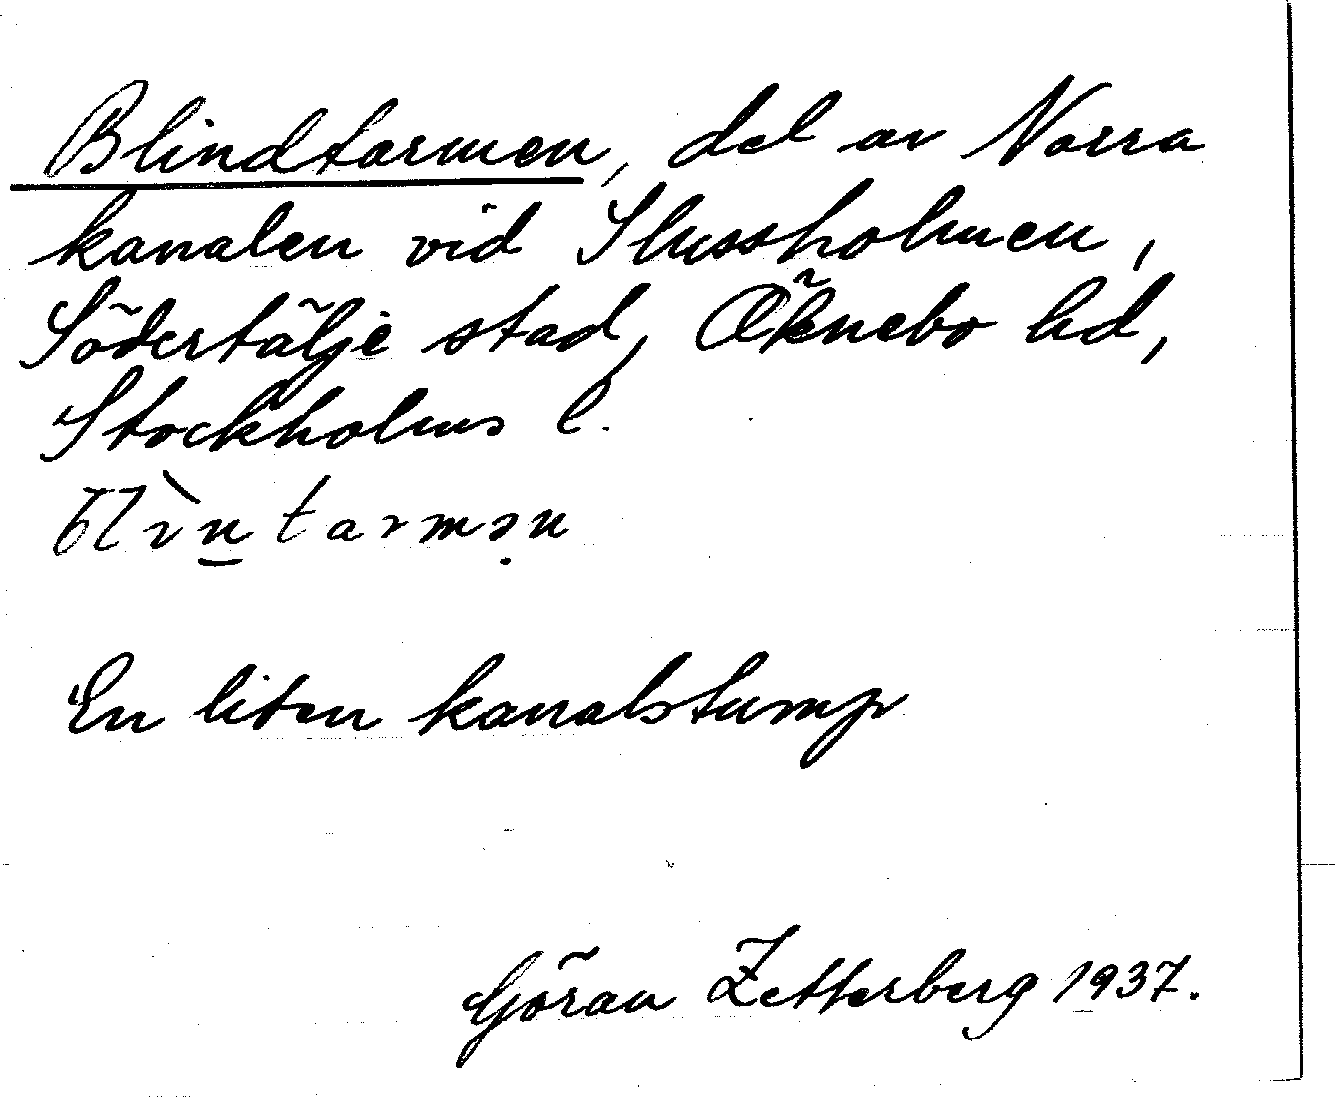 Blindtarmen, del av Norra
kanalen vid Slussholmen,
Södertälje stad, Öknebo hd,
Stockholms l.
blìn̲tarmə̣n
En liten kanalstump
Göran Zetterberg 1937.